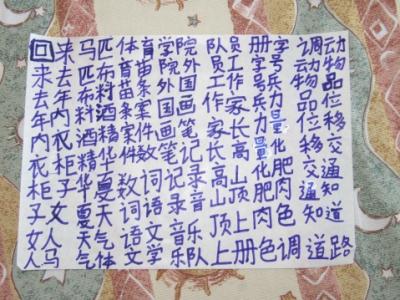 回来马匹体育学院队员册字调动
来去匹布育苗院外员工字号动物
去年布料苗条外国工作号兵物品
年内料酒条案国画作家兵力品位
内衣酒精案件画笔家长力量位移
衣柜精华件数笔记长高量化移交
柜子华夏数词记录高山化肥交通
子女夏天词语录音山顶肥肉通知
女人天气语文音乐顶上肉色知道
人马气体文学乐队上册色调道路